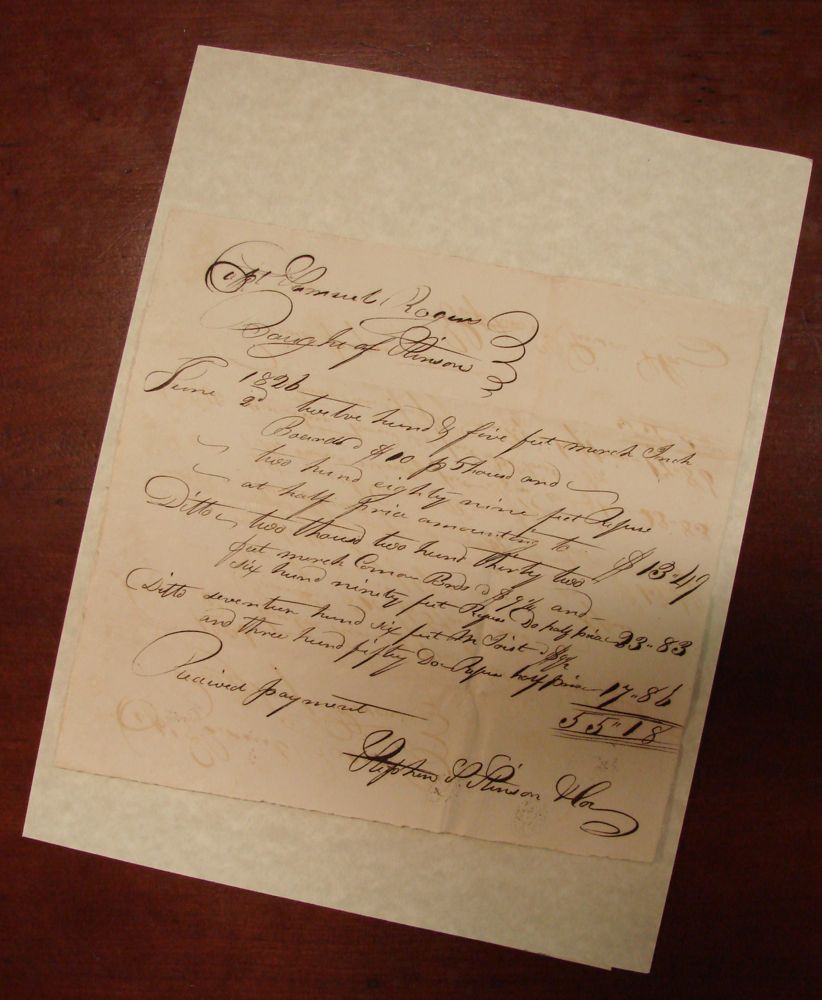 Capt Samuel Rogers
Bought of Stinson
June 1826
2d twelve hund & five feet merch Inch
Boards $10 p Thous and
two hund eighty nine feet Refuse
at half price amounting to $13"49
Ditto two thous two hund thirty two
feet merch Boards $9½ and
six hund ninety feet Refuse Do half price 23"83
Ditto seventeen hund six feet $9½
and three hund fifty Do Refuse half price 17"86
55"18
Received payment
Stephen Stinson